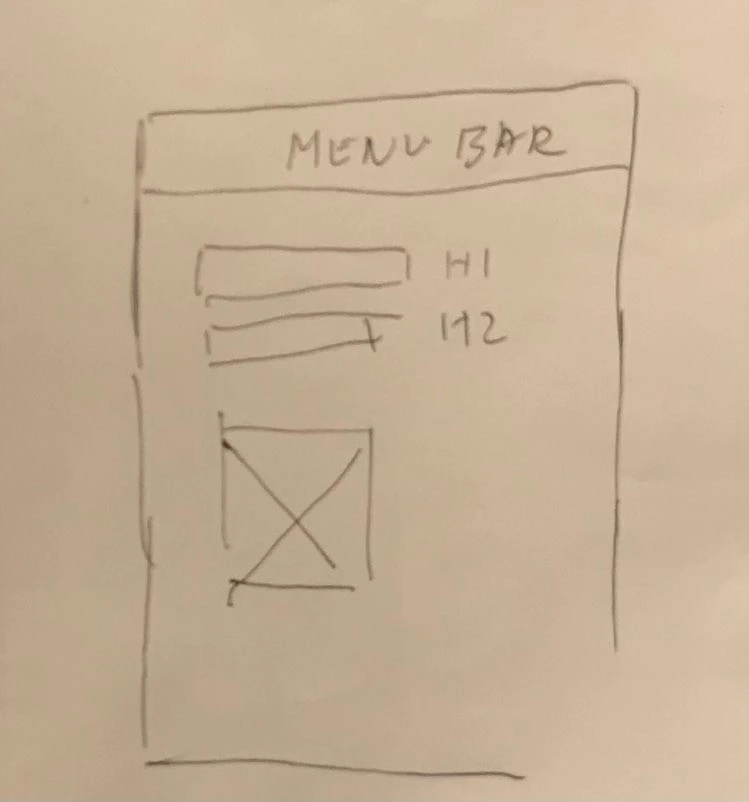 MENU BAR
H1
H2